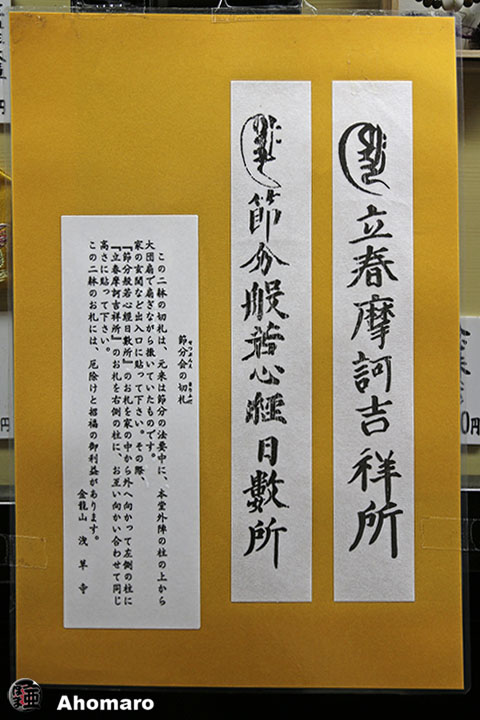 立春摩訶吉祥所
節分般若心經日數所
節分会の切札
せつぶんえ きりふだ
この二躰の切札は、元来は節分の法要中に、本堂外陣の柱の上から
大団扇で扇ぎながら撒いていたものです。
家の玄関など出入口に貼って下さい。その際、
『節分般若心經日數所』のお札を家の中から外へ向かって左側の柱に
『立春摩訶吉祥所』のお札を右側の柱に、お互い向かい合わせて同じ
高さに貼って下さい。
この二躰のお札には、厄除けと招福の御利益があります。
金龍山 浅草寺
Ahomaro